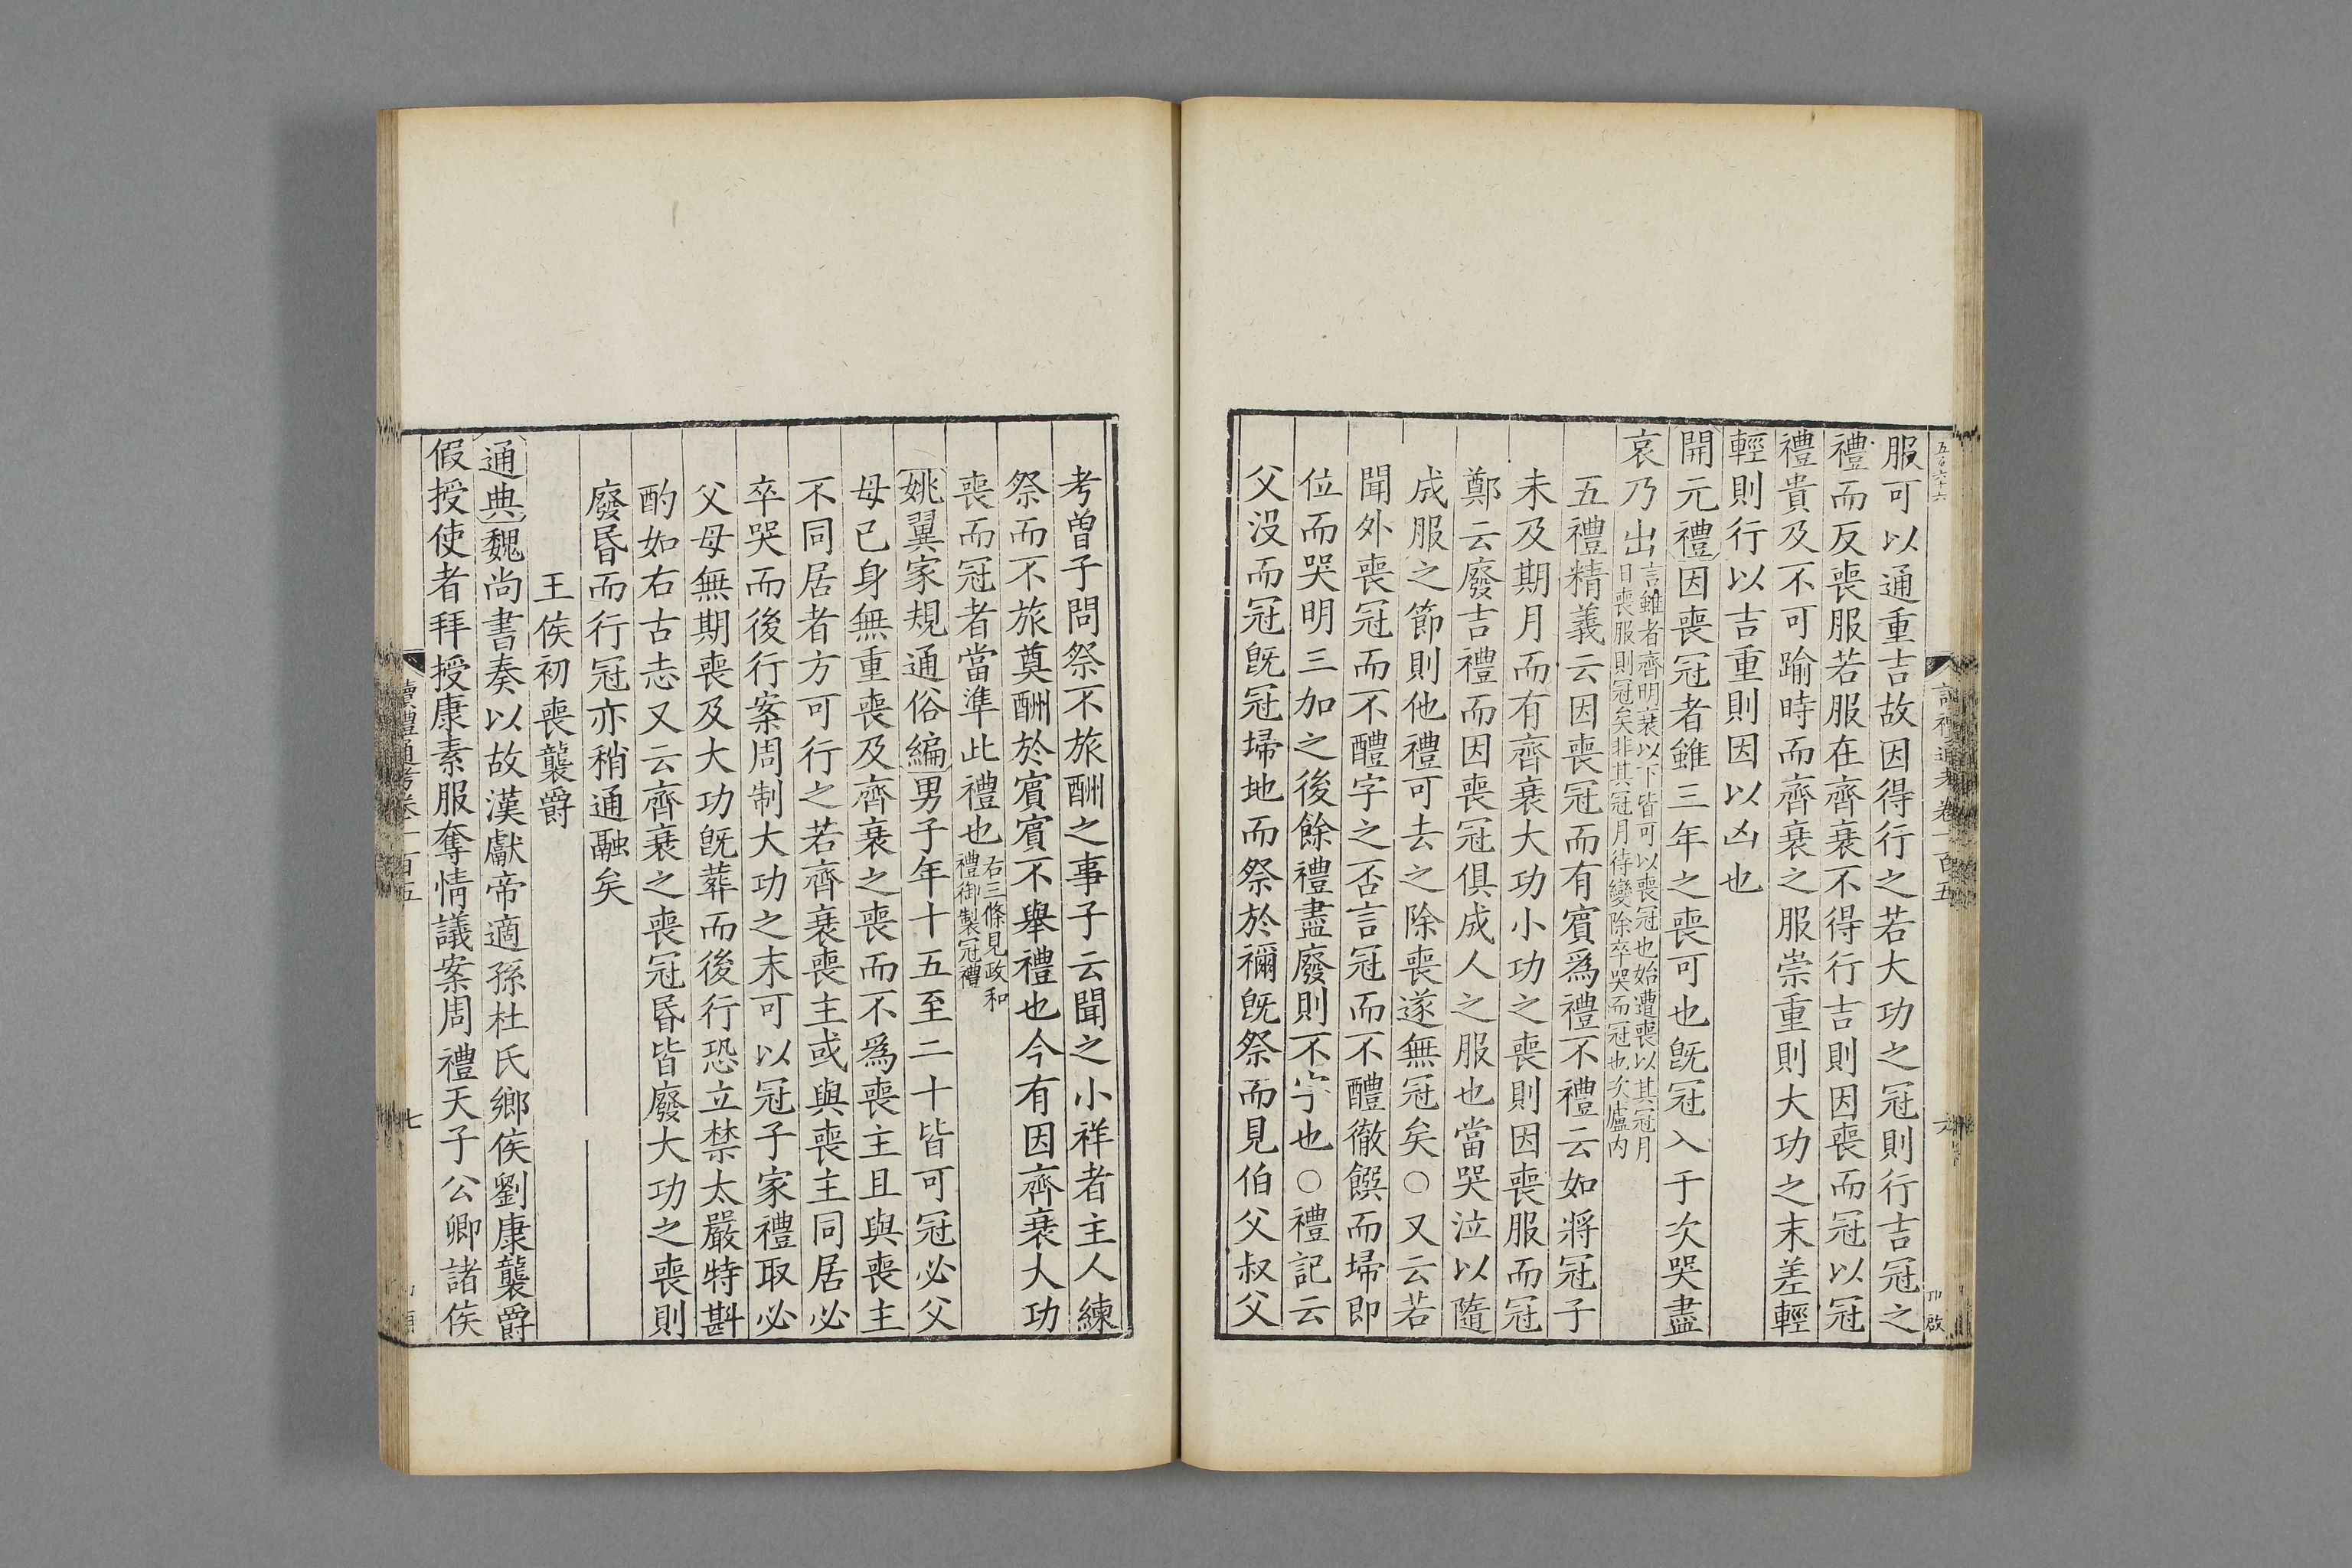 五百六十六
讀禮通考卷一百五
六
服可以通重吉故因得行之若大功之冠則行吉冠之
禮而反喪服若服在齊衰不得行吉則因喪而冠以冠
禮貴及不可踰時而齊衰之服崇重則大功之末差輕
輕則行以吉重則因以凶也
開元禮因喪冠者雖三年之喪可也旣冠入于次哭盡
哀乃出言雖者齊明衰以下皆可以喪冠也始遭喪以其冠月
日喪服則冠矣非其冠月待變除卒哭而冠也次廬內
五禮精義云因喪冠而有賔爲禮不禮云如將冠子
未及期月而有齊衰大功小功之喪則因喪服而冠
鄭云廢吉禮而因喪冠俱成人之服也當哭泣以隨
成服之節則他禮可去之除喪遂無冠矣○又云若
聞外喪冠而不醴字之否言冠而不醴徹饌而埽即
位而哭明三加之後餘禮盡廢則不字也○禮記云
父沒而冠旣冠埽地而祭於禰旣祭而見伯父叔父
考曾子問祭不旅酬之事子云聞之小祥者主人練
祭而不旅奠酬於賔賔不舉禮也今有因齊衰大功
喪而冠者當準此禮也右三條見政和
禮御製冠禮
姚翼家規通俗編男子年十五至二十皆可冠必父
母已身無重喪及齊衰之喪而不爲喪主且與喪主
不同居者方可行之若齊衰喪主或與喪主同居必
卒哭而後行案周制大功之末可以冠子家禮取必
父母無期喪及大功旣葬而後行恐立禁太嚴特斟
酌如右古志又云齊衰之喪冠昏皆廢大功之喪則
廢昏而行冠亦稍通融矣
王侯初喪襲爵
通典魏尚書奏以故漢獻帝適孫杜氏鄉侯劉康襲爵
假授使者拜授康素服奪情議案周禮天子公卿諸侯
讀禮通考卷一百五
七